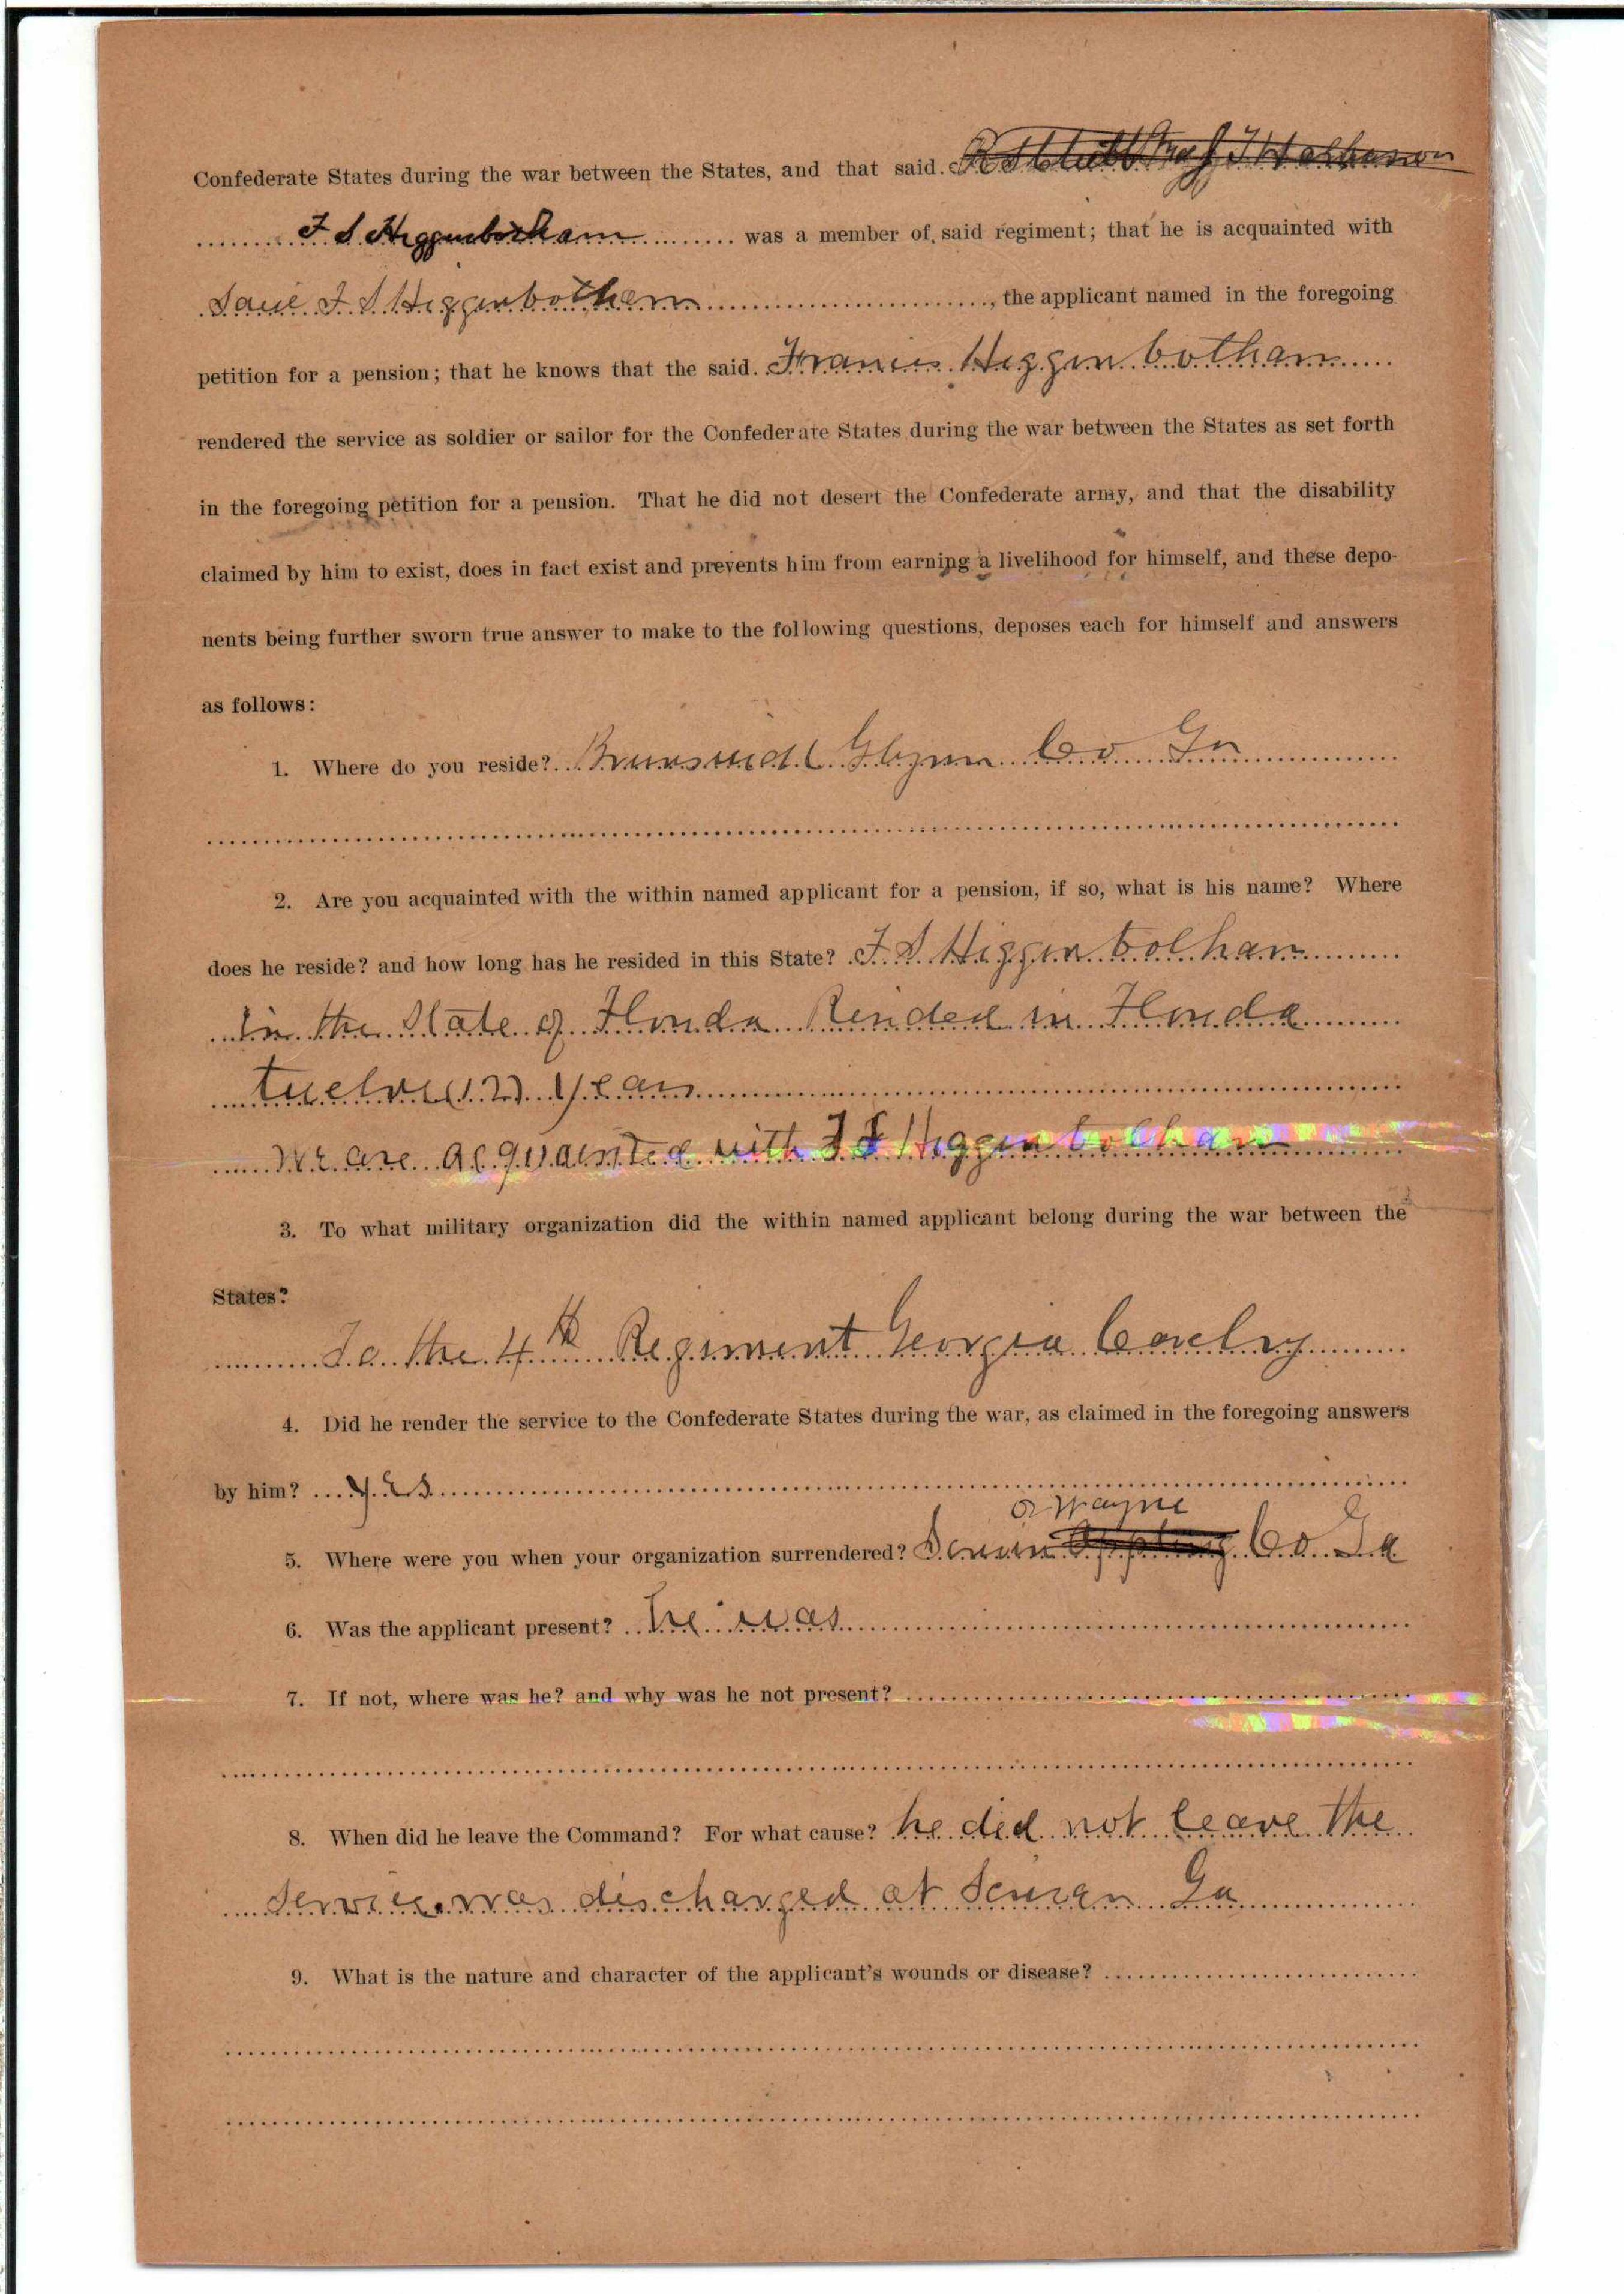 Confederate States during the war between the States, and that said
F S Higgenbotham was a member of said regiment; that he is acquainted with
Said F S Higgenbotham, the applicant named in the foregoing
petition for a pension; that he knows that the said Francis Higgenbotham
rendered the service as soldier or sailor for the Confederate States during the war between the States as set forth
in the foregoing petition for a pension. That he did not desert the Confederate army, and that the disability
claimed by him to exist, does in fact exist and prevents him from earning a livelihood for himself, and these depo-
nents being further sworn true answer to make to the following questions, deposes each for himself and answers
as follows:
1. Where do you reside? Brunswick Glynn Co Ga
2. Are you acquainted with the within named applicant for a pension, if so, what is his name? Where
does he reside? and how long has he resided in this State? F S Higgenbotham
in the State of Florida Resided in Florida
twelve (12) years
we are acquainted with F S Higgenbotham
3. To what military organization did the within named applicant belong during the war between the
States?
To the 4th Regiment Georgia Cavelry
4. Did he render the service to the Confederate States during the war, as claimed in the foregoing answers
by him? yes
or Wayne
5. Where were you when your organization surrendered? Screven Appling Co Ga
6. Was the applicant present? he was
7. If not, where was he? and why was he not present?
8. When did he leave the Command? For what cause? he did not leave the
Service was discharged at Ga
9. What is the nature and character of the applicant's wounds or disease?